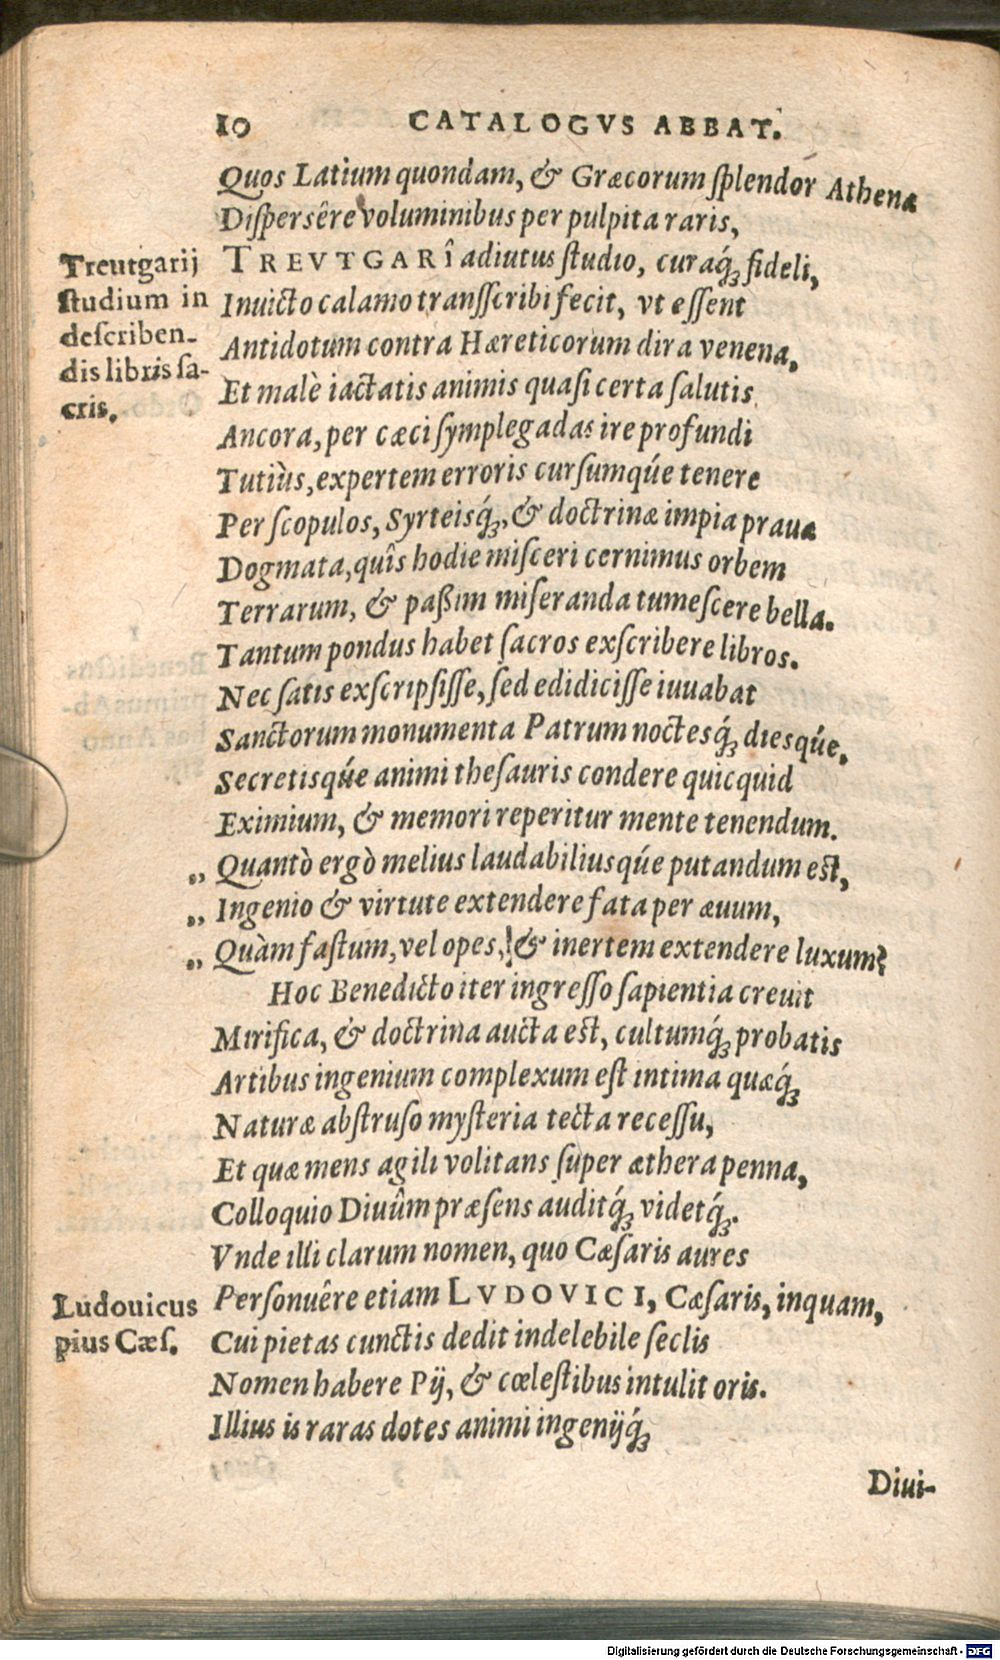 10 CATALOGVS ABBAT.
Quos Latium quondam, & Græcorum ſplendor Athenæ
Diſperſêre voluminibus per pulpita raris,
TREVTGARî adiutus ſtudio, curaq́ꝫ fideli,
Inuicto calamo transſcribi fecit, vt eſſent
Antidotum contra Hæreticorum dira venena,
Et malè iactatis animis quaſi certa ſalutis
Ancora, per cæci ſymplegadas ire profundi
Tutiùs, expertem erroris curſumqúe tenere
Per ſcopulos, Syrteisq́ꝫ, & doctrinæ impia prauæ
Dogmata, quîs hodie miſceri cernimus orbem
Terrarum, & paßim miſeranda tumeſcere bella.
Tantum pondus habet ſacros exſcribere libros.
Nec ſatis exſcripſiſſe, ſed edidiciſſe iuuabat
Sanctorum monumenta Patrum noctesq́ꝫ diesqúe,
Secretisqúe animi theſauris condere quicquid
Eximium, & memori reperitur mente tenendum.
„ Quantò ergò melius laudabiliusqúe putandum est,
„ Ingenio & virtute extendere fata per æuum,
„ Quàm faſtum, vel opes, & inertem extendere luxum?
Hoc Benedicto iter ingreſſo ſapientia creuit
Mirifica, & doctrina aucta est, cultumq́ꝫ probatis
Artibus ingenium complexum eſt intima quæq́ꝫ
Naturæ abſtruſo myſteria tecta receſſu,
Et quæ mens agili volitans ſuper æthera penna,
Colloquio Diuûm præſens auditq́ꝫ videtq́ꝫ.
Vnde illi clarum nomen, quo Cæſaris aures
Perſonuêre etiam LVDOVICI, Cæſaris, inquam,
Cui pietas cunctis dedit indelebile ſeclis
Nomen habere Pij, & cœleſtibus intulit oris.
Illius is raras dotes animi ingenijq́ꝫ
Diui-
Treutgarij
ſtudium in
deſcriben-
dis libris ſa-
cris.
Ludouicus
pius Cæſ.
Digitalisierung gefördert durch die Deutsche Forschungsgemeinschaft - DFG